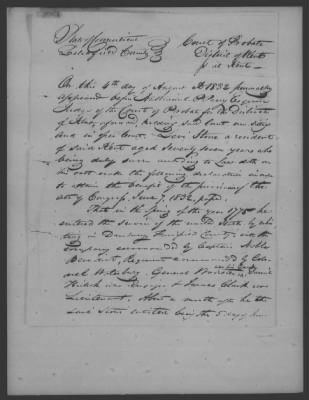 State of Connecticut
Litchfield County
Court of Probate
District of Kent
ss at Kent
On this 4th day of August AD 1832 personally
appeared before Nathaniel P. Perry Esquire
Judge of the Court of Probate for the District
of Kent aforesaid holding said Court
and in open Court Levi Stone a resident
of said Kent aged Seventy seven years who
being duly sworn according to Law doth on
his oath make the following declaration in order
to obtain the benefit of the provision of the
act of Congress June 7, 1832, passed.
That in the Spring of the year 1775 he
entered the service of the United States by enlis
ting in Danbury Fairfield County, into the
Company commanded by Captain Noble
Benedict, Regiment commanded by Colo
nel Waterbury General Wooster
was Ensign & James Clark was
Lieutenant. About a month after he the
said Stone enlisted being the 5 day of June